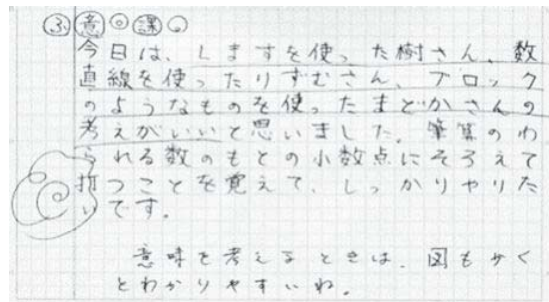 ふ意◎課◎
今日は、しますを使った樹さん、数
直線を使ったりずむさん、ブロック
のようなものを使ったまどかさんの
考えがいいと思いました。筆算のわ
られる数のもとの小数点にそろえて
打つことを覚えて、しっかりやりた
いです。
意味を考えるときは、図もかく
とわかりやすいね。